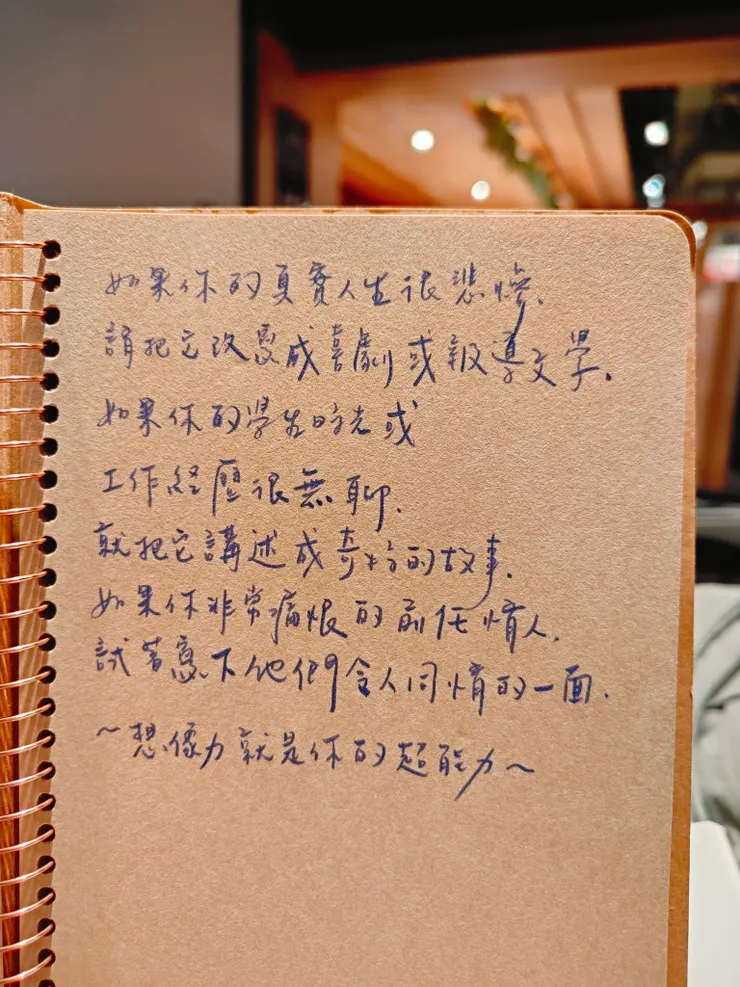 如果你的真實人生很悲慘.
請把它改寫成喜劇或報導文學.
如果你的學生時光或
工作經歷很無聊.
就把它講述成奇怪的故事.
如果你非常痛恨的前任情人.
試著寫下他們令人同情的一面.
~想像力就是你的超能力~